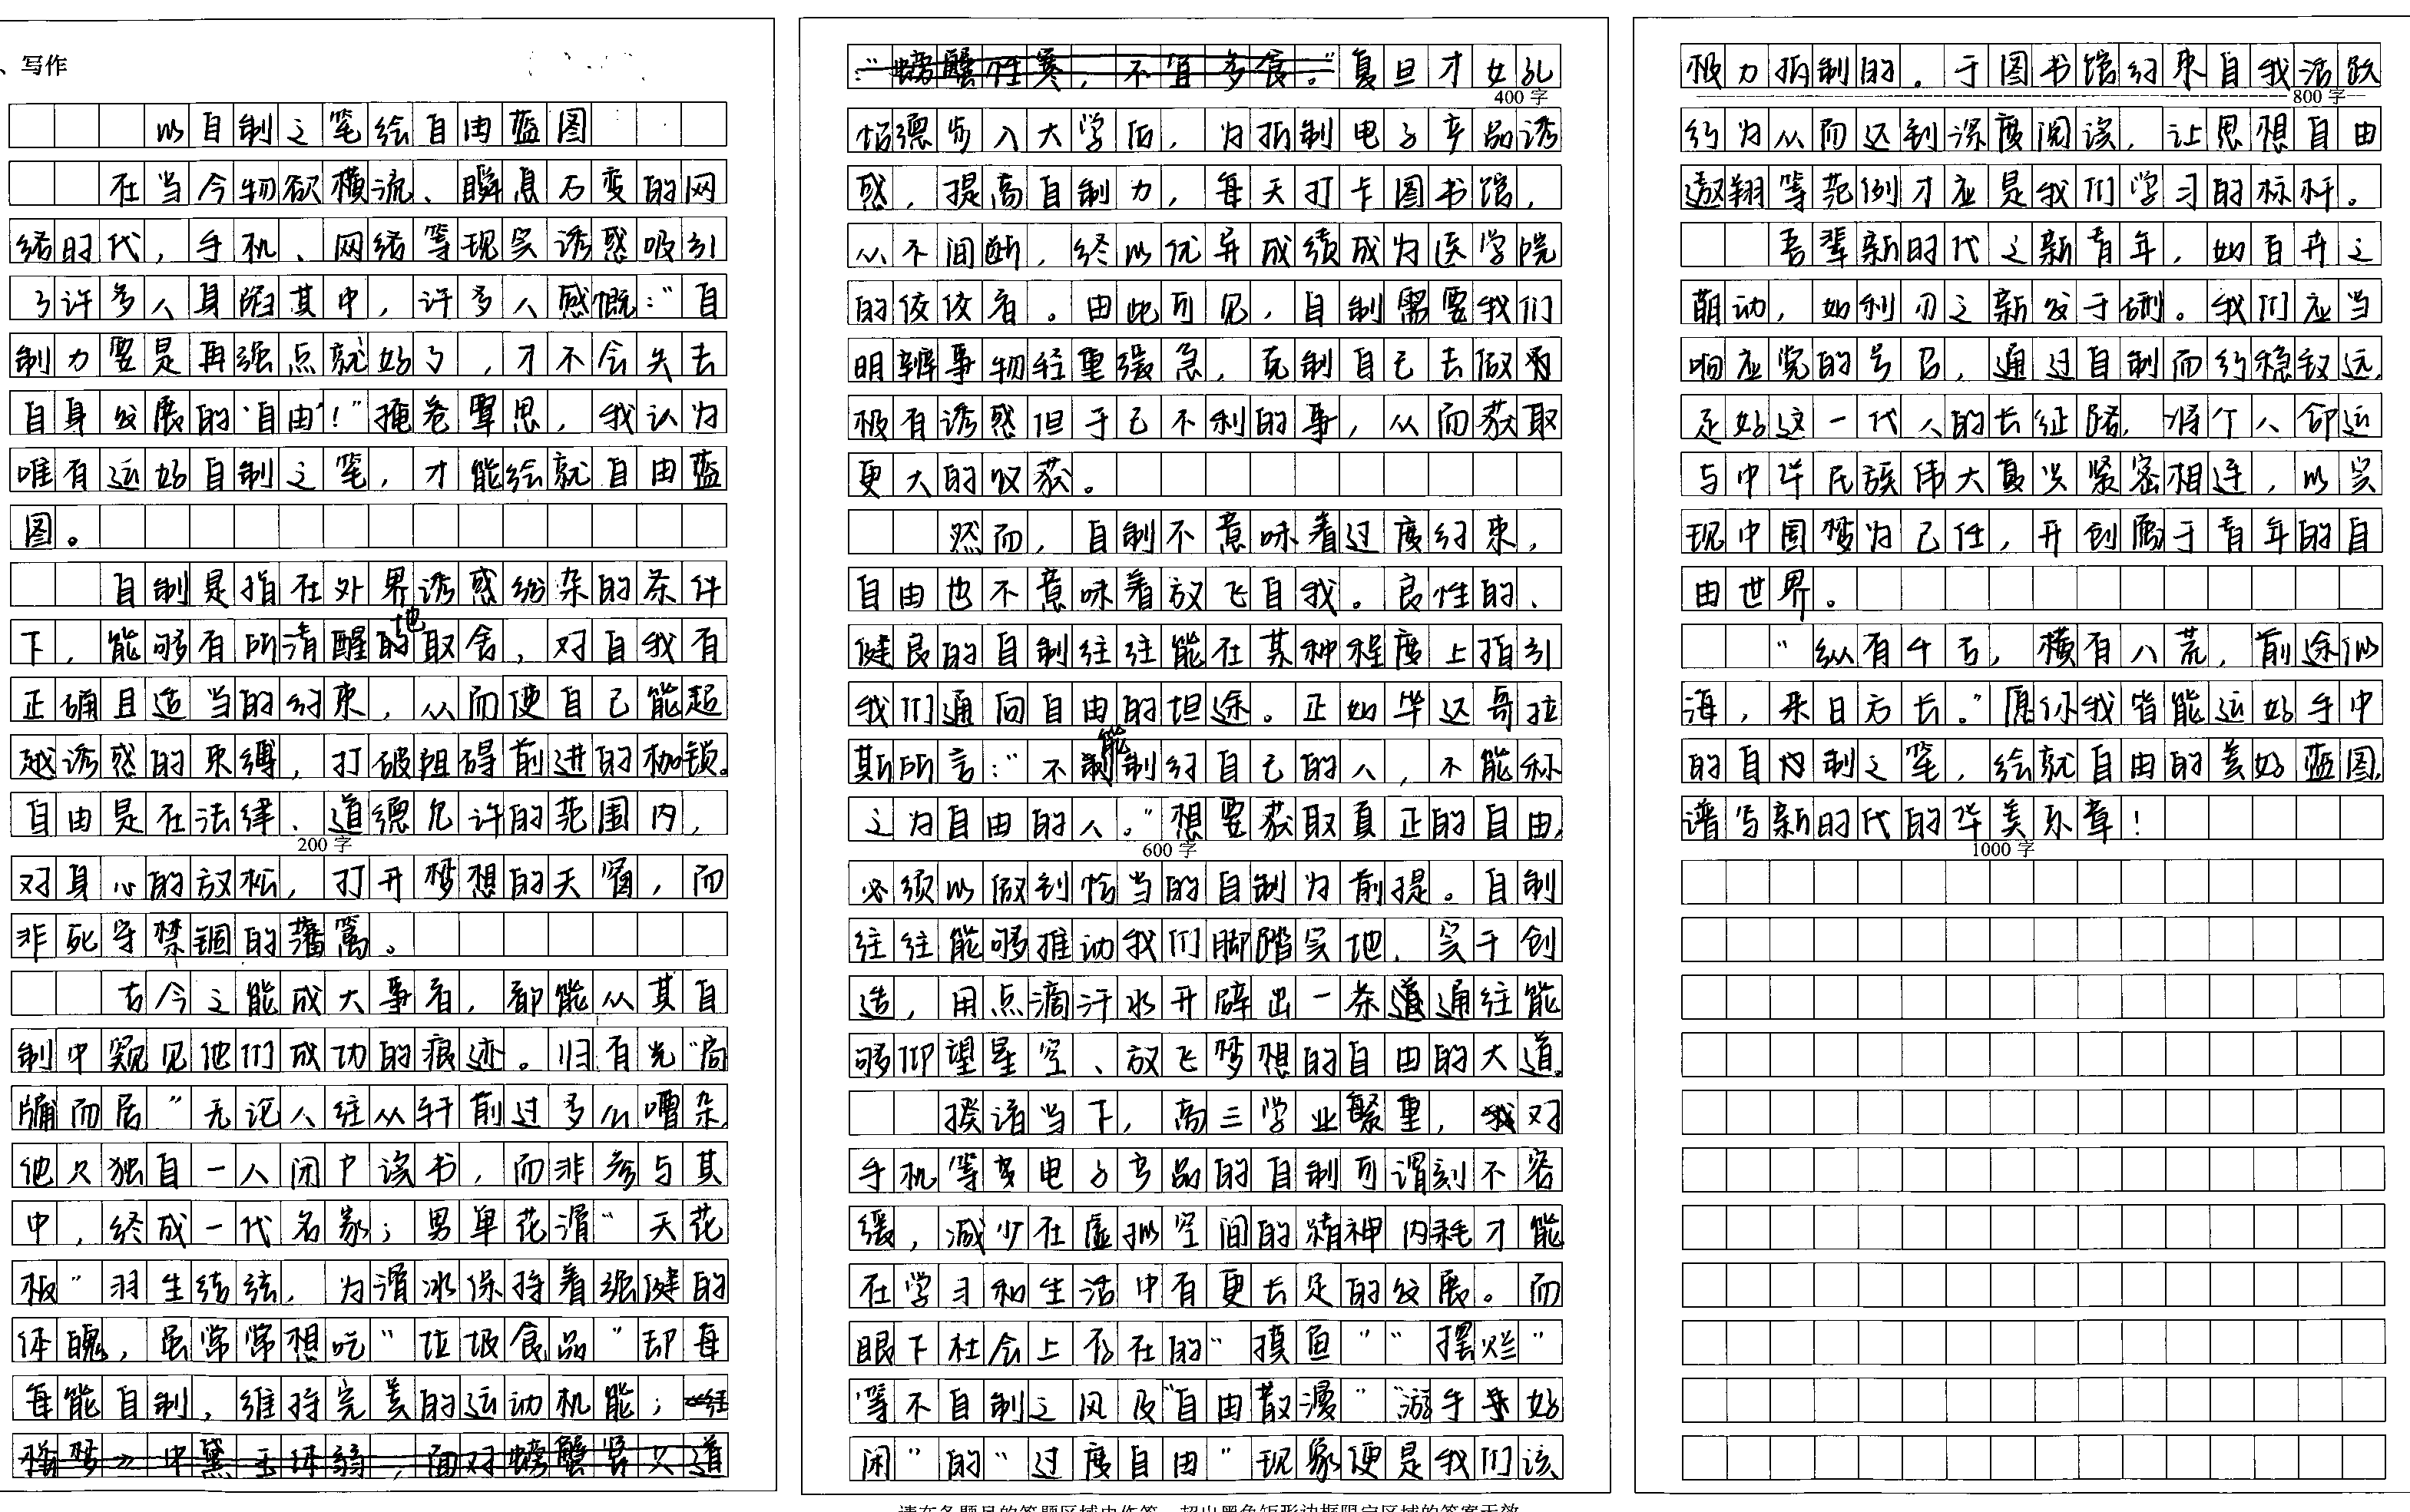 、写作
以自制之笔绘自由蓝图
在当今物欲横流、瞬息万变的网
络时代，手机、网络等现实诱惑吸引
了许多人身陷其中，许多人感慨：“自
制力要是再强点就好了，才不会失去
自身发展的‘自由’！”掩卷覃思，我认为
唯有运好自制之笔，才能绘就自由蓝
图。
自制是指在外界诱惑纷杂的条件
下，能够有所清醒地取舍，对自我有
正确且适当的约束，从而使自己能超
越诱惑的束缚，打破阻碍前进的枷锁。
自由是在法律、道德允许的范围内，
200字
对身心的放松，打开梦想的天窗，而
非死守禁锢的藩篱。
古今之能成大事者，都能从其自
制中窥见他们成功的痕迹。归有光“扃
牖而居”无论人往从轩前过多么嘈杂，
他只独自一人闭户读书，而非参与其
中，终成一代名家；男单花滑“天花
板”羽生结弦，为滑冰保持着强健的
体魄，虽常常想吃“垃圾食品”却每
每能自制，维持完美的运动机能；
梅梦》中黛玉体弱，面对螃蟹宴只道
：“螃蟹性寒，不宜多食。”复旦才女孔
400字
恬德步入大学后，为抵制电子产品诱
惑，提高自制力，每天打卡图书馆，
从不间断，终以优异成绩成为医学院
的佼佼者。由此可见，自制需要我们
明辨事物轻重缓急，克制自己去做
极有诱惑但于己不利的事，从而获取
更大的收获。
然而，自制不意味着过度约束，
自由也不意味着放飞自我。良性的、
健良的自制往往能在某种程度上指引
我们通向自由的坦途。正如毕达哥拉
斯所言：“不能制约自己的人，不能称
之为自由的人。”想要获取真正的自由，
600字
必须以做到恰当的自制为前提。自制
往往能够推动我们脚踏实地，实干创
造，用点滴汗水开辟出一条通往能
够仰望星空、放飞梦想的自由的大道。
揆诸当下，高三学业繁重，对
手机等电子产品的自制可谓刻不容
缓，减少在虚拟空间的精神内耗才能
在学习和生活中有更长足的发展。而
眼下社会上存在的“摸鱼”“摆烂”
等不自制之风及“自由散漫”“游手好
闲”的“过度自由”现象便是我们该
极力抵制的。于图书馆约束自我活跃
800字
约为从而达到深度阅读，让思想自由
遨翔等范例才应是我们学习的标杆。
吾辈新时代之新青年，如百卉之
萌动，如利刃之新发于硎。我们应当
响应党的号召，通过自制而行稳致远，
走好这一代人的长征路，将个人命运
与中华民族伟大复兴紧密相连，以实
现中国梦为己任，开创属于青年的自
由世界。
“纵有千古，横有八荒，前途似
海，来日方长。”愿你我皆能运好手中
的自制之笔，绘就自由的美好蓝图，
谱写新时代的华美乐章！
1000字